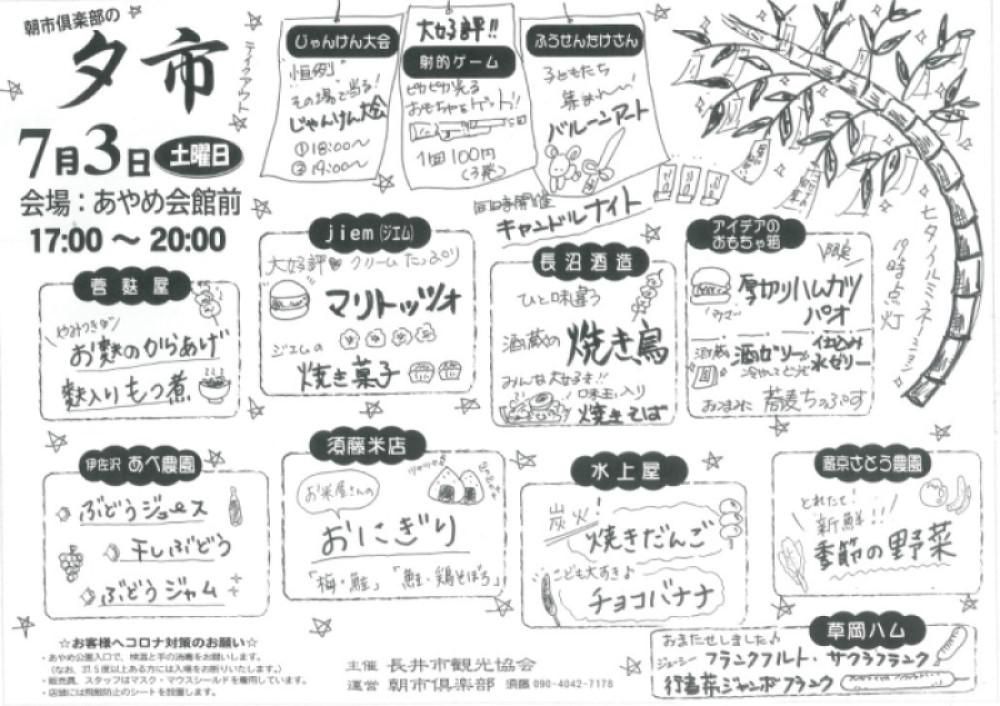 朝市倶楽部の
夕市
テイクアウト
7月3日 土曜日
会場：あやめ会館前
17:00 〜 20:00
じゃんけん大会
恒例
その場で当る!
じゃんけん大会
①18:00〜
②19:00〜
大好評!!
射的ゲーム
ピカピカ光る
おもちゃをゲット!
1回100円
(3発)
ふうせんたけさん
子どもたち
集まれ〜!
バルーンアート
同時開催
キャンドルナイト
七夕イルミネーション
19時点灯
jiem(ジエム)
大好評♥クリームたっぷり
マリトッツォ
ジエムの
焼き菓子
長沼酒造
ひと味違う
酒蔵の焼き鳥
みんな大好き!!
味玉入り
焼きそば
アイデアの
おもちゃ箱
限定
厚切りハムカツ
パオ
酒蔵
酒ゼリー
冷やしてどうぞ
仕込み
水ゼリー
おつまみに 蕎麦ちっぷす
やみつきダシ
お麩のからあげ
麩入りもつ煮
伊佐沢 あべ農園
ぶどうジュース
干しぶどう
ぶどうジャム
須藤米店
お米屋さんの
おにぎり
「梅・鮭」「鮭・鶏そぼろ」
水上屋
炭火!
焼きだんご
こども大すきよ
チョコバナナ
蔵京さとう農園
とれたて!
新鮮!!
季節の野菜
草岡ハム
おまたせしました♪
ジューシー フランクフルト・サクラフランク
行者菜ジャンボフランク
☆お客様へコロナ対策のお願い☆
・あやめ公園入口で、検温と手の消毒をお願いします。
(なお、37.5度以上ある方には入場をお断りいたします。)
・販売員、スタッフはマスク・マウスシールドを着用しています。
・店舗には飛散防止のシートを設置します。
主催 長井市観光協会
運営 朝市倶楽部 須藤 090-4042-7178